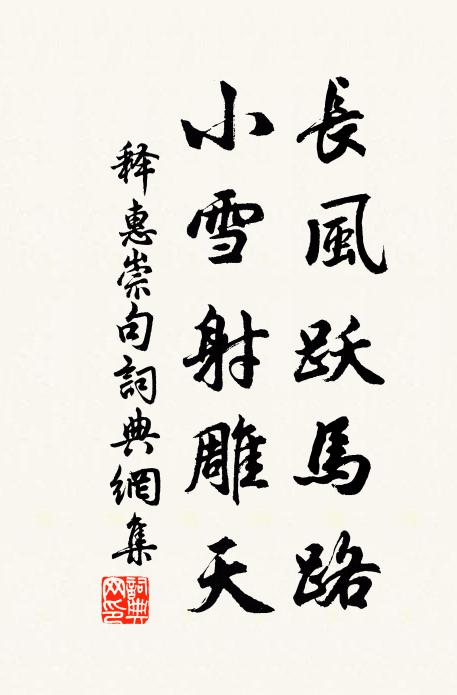 長風跃馬路
小雪射雕天
释惠崇句詞典網集
詞典网印